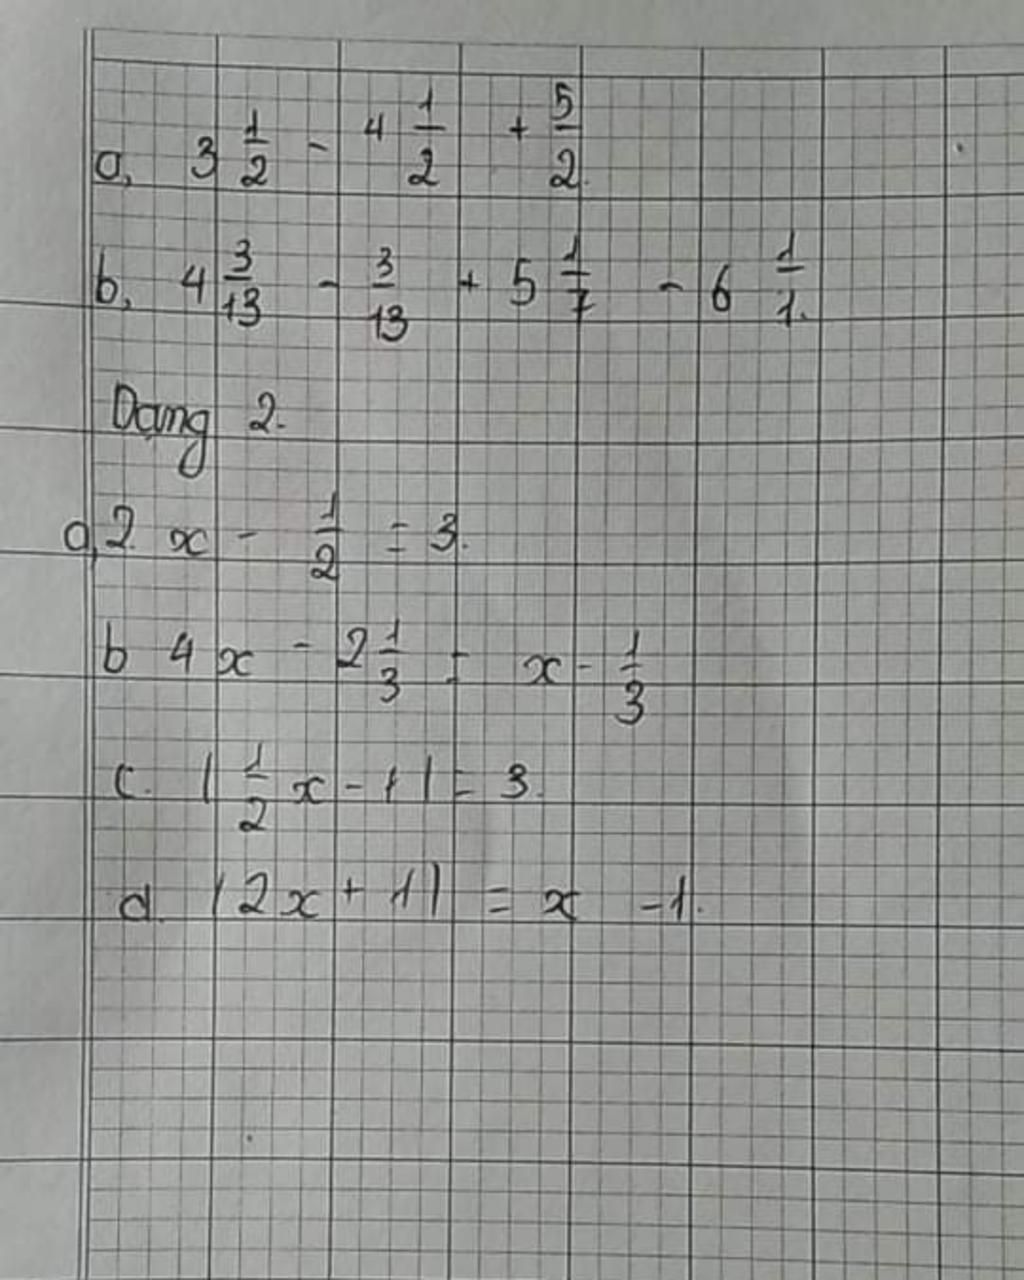 a, 3 1/2 - 4 1/2 + 5/2.
b, 4 3/13 - 3/13 + 5 1/7 - 6 1/1.
Dạng 2.
a, 2 x - 1/2 = 3.
b 4 x - 2 1/3 = x - 1/3
c. |1/2 x - 1| = 3.
d. |2x + 1| = x - 1.